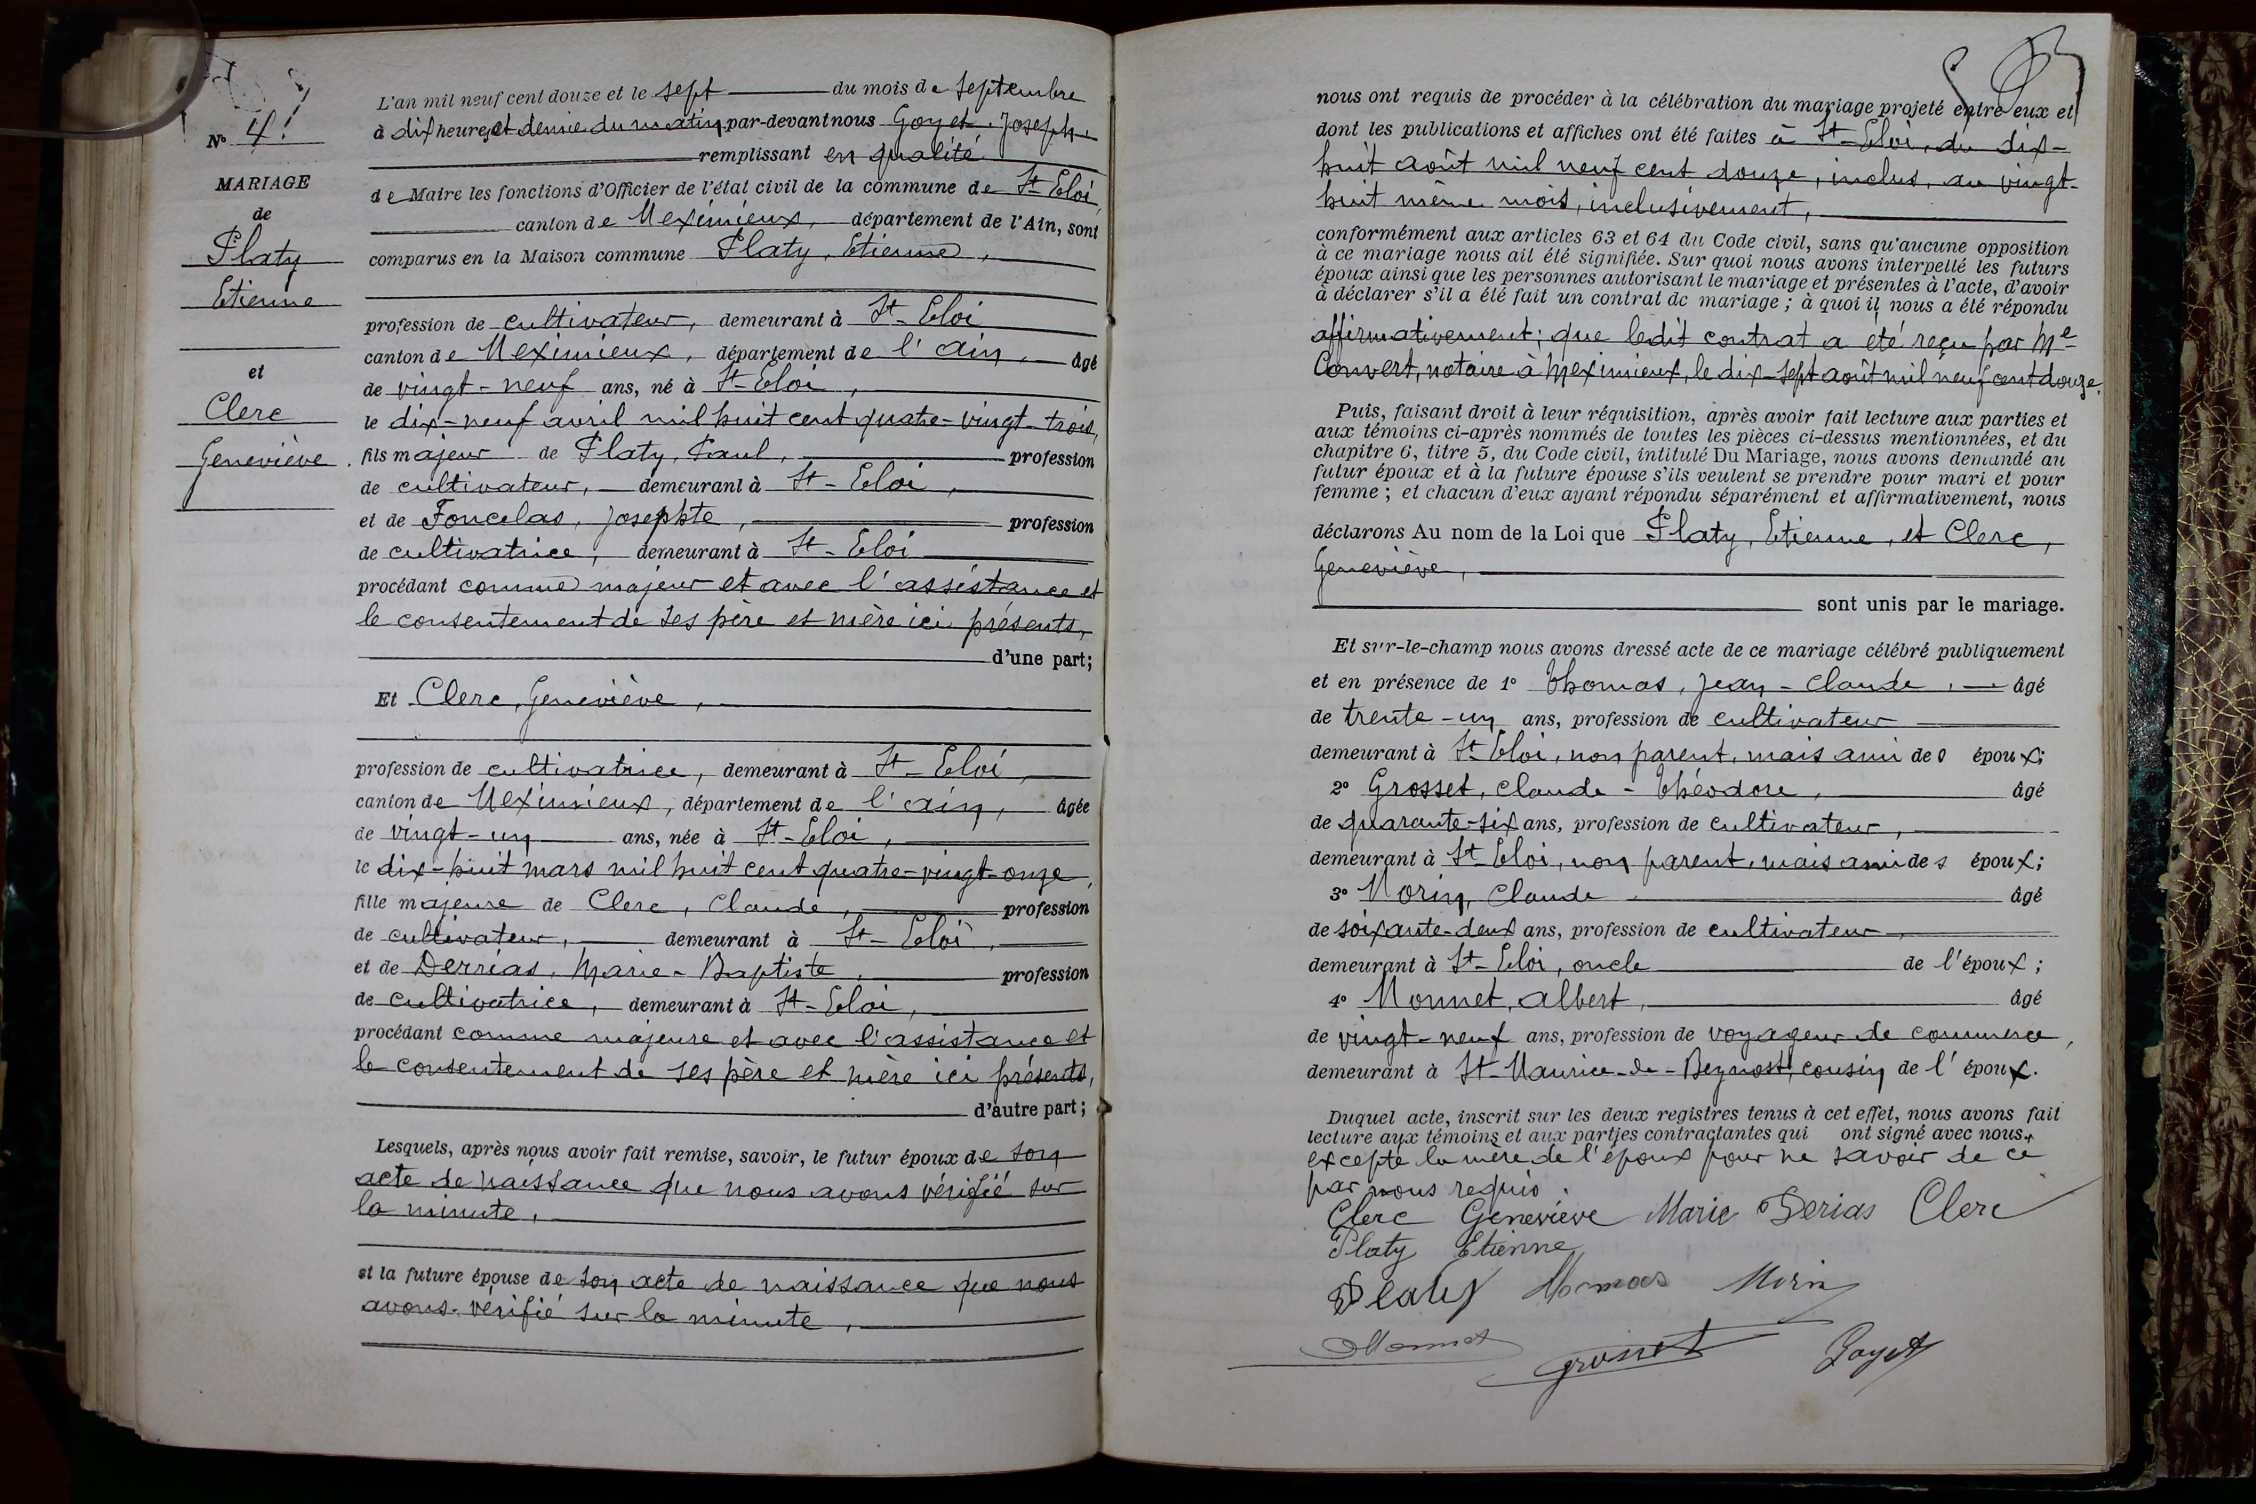 N° 4!
MARIAGE
de
Platy
Etienne
et
Clerc
Geneviève
L'an mil neuf cent douze et le sept du mois de septembre
à dix heures et demie du matin par-devant nous Goyet Joseph
remplissant en qualité
de Maire les fonctions d'Officier de l'état civil de la commune de St-Eloi,
canton de Meximieux, département de l'Ain, sont
comparus en la Maison commune Platy, Etienne,
profession de cultivateur, demeurant à St-Eloi
canton de Meximieux, département de l'ain, âgé
de vingt-neuf ans, né à St-Eloi,
le dix-neuf avril mil huit cent quatre-vingt-trois,
fils majeur de Platy, Paul, profession
de cultivateur, demeurant à St-Eloi,
et de Foncelas, Josephte, profession
de cultivatrice, demeurant à St-Eloi
procédant comme majeur et avec l'assistance et
le consentement de ses père et mère ici présents,
d'une part;
Et Clerc, Geneviève,
profession de cultivatrice, demeurant à St-Eloi,
canton de Meximieux, département de l'ain, âgée
de vingt-un ans, née à St-Eloi,
le dix-huit mars mil huit cent quatre-vingt-onze,
fille majeure de Clerc, Claude, profession
de cultivateur, demeurant à St-Eloi,
et de Derrias, Marie-Baptiste, profession
de cultivatrice, demeurant à St-Eloi,
procédant comme majeure et avec l'assistance et
le consentement de ses père et mère ici présents,
d'autre part;
Lesquels, après nous avoir fait remise, savoir, le futur époux de son
acte de naissance que nous avons vérifié sur
la minute,
et la future épouse de son acte de naissance que nous
avons vérifié sur la minute,
nous ont requis de procéder à la célébration du mariage projeté entre eux et
dont les publications et affiches ont été faites à St-Eloi, du dix-
huit août mil neuf cent douze, inclus, au vingt-
huit même mois, inclusivement,
conformément aux articles 63 et 64 du Code civil, sans qu'aucune opposition
à ce mariage nous ait été signifiée. Sur quoi nous avons interpellé les futurs
époux ainsi que les personnes autorisant le mariage et présentes à l'acte, d'avoir
à déclarer s'il a été fait un contrat de mariage; à quoi il nous a été répondu
affirmativement; que ledit contrat a été reçu par Me
Convert, notaire à Meximieux, le dix-sept août mil neuf cent douze.
Puis, faisant droit à leur réquisition, après avoir fait lecture aux parties et
aux témoins ci-après nommés de toutes les pièces ci-dessus mentionnées, et du
chapitre 6, titre 5, du Code civil, intitulé Du Mariage, nous avons demandé au
futur époux et à la future épouse s'ils veulent se prendre pour mari et pour
femme; et chacun d'eux ayant répondu séparément et affirmativement, nous
déclarons Au nom de la Loi que Platy, Etienne, et Clerc,
Geneviève,
sont unis par le mariage.
Et sur-le-champ nous avons dressé acte de ce mariage célébré publiquement
et en présence de 1° Thomas, Jean-Claude, âgé
de trente-un ans, profession de cultivateur
demeurant à St-Eloi, non parent, mais ami des époux;
2° Grosset, Claude-Théodore, âgé
de quarante-six ans, profession de cultivateur,
demeurant à St-Eloi, non parent, mais ami des époux;
3° Morin, Claude âgé
de soixante-deux ans, profession de cultivateur
demeurant à St-Eloi, oncle de l'époux;
4° Monnet, albert, âgé
de vingt-neuf ans, profession de voyageur de commerce,
demeurant à St-Maurice-de-Beynost, cousin de l'époux.
Duquel acte, inscrit sur les deux registres tenus à cet effet, nous avons fait
lecture aux témoins et aux parties contractantes qui ont signé avec nous,
excepté la mère de l'époux pour ne savoir de ce
par nous requis.
Clerc Geneviève Marie Derias Clerc
Platy Etienne
Platy Thomas Morin
Monnet Grosset Goyet